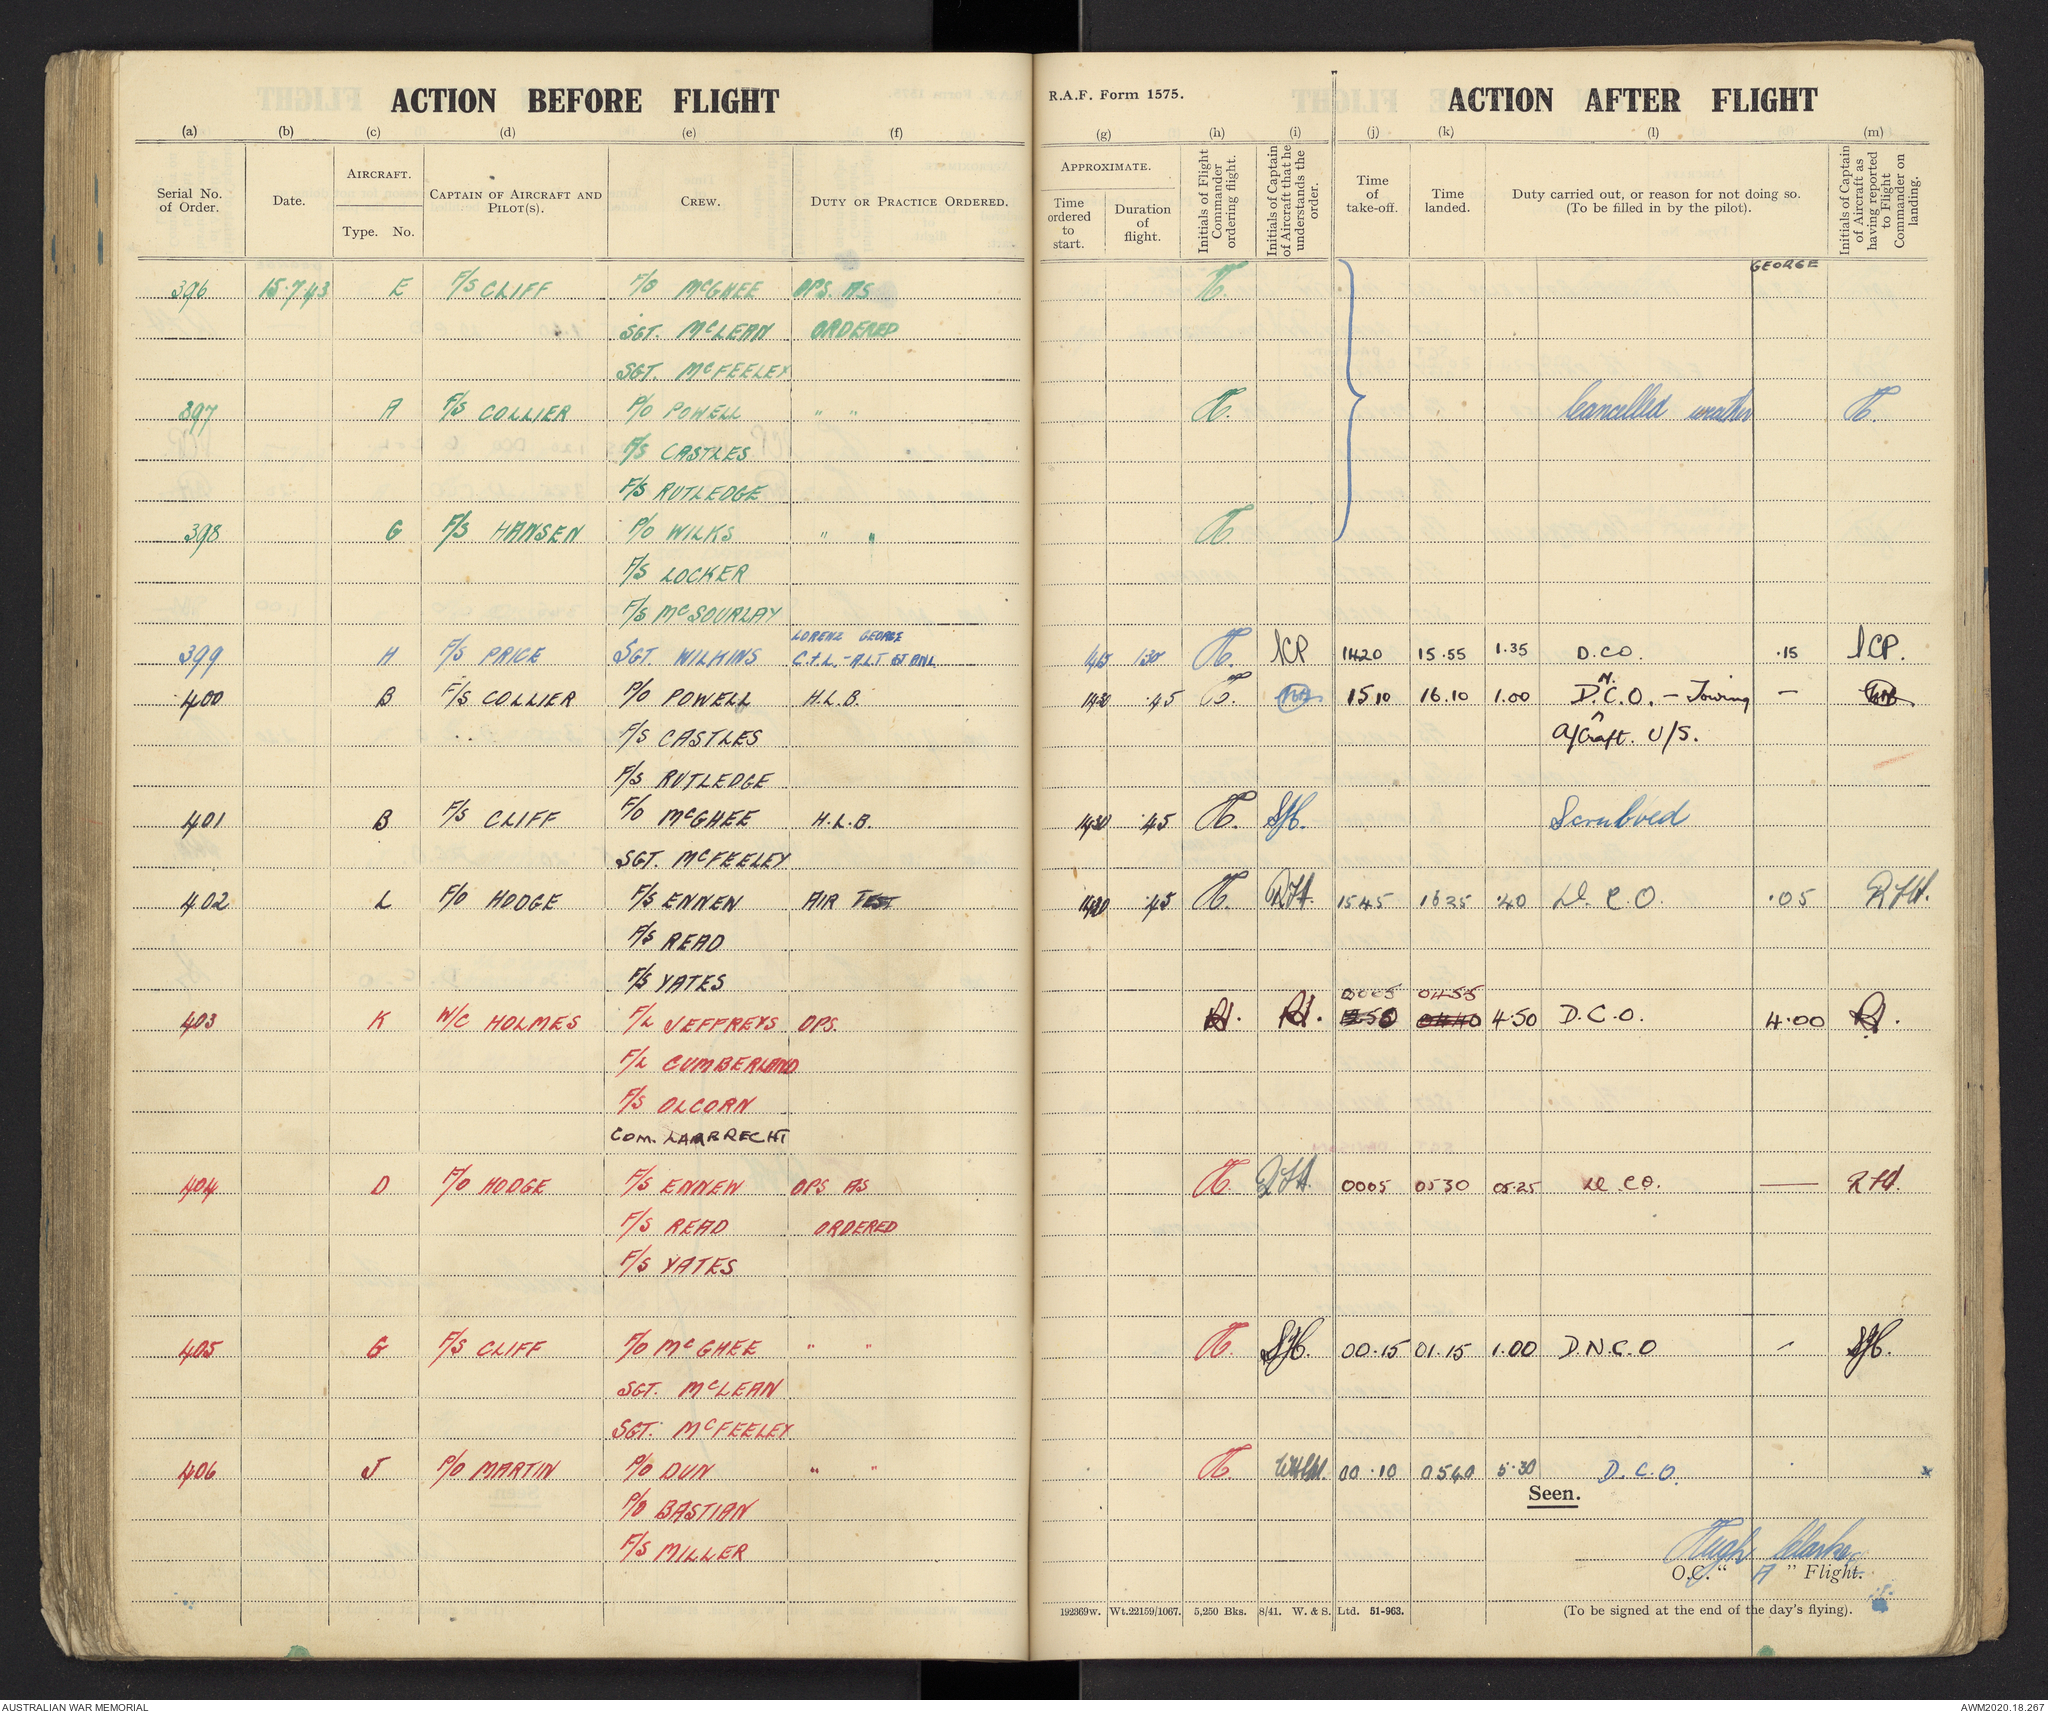 ACTION BEFORE FLIGHT
R.A.F. Form 1575.
ACTION AFTER FLIGHT
(a) (b) (c) (d) (e) (f) (g) (h) (i) (j) (k) (l) (m)
Serial No. of Order.
Date.
AIRCRAFT.
Type. No.
CAPTAIN OF AIRCRAFT AND PILOT(S).
CREW.
DUTY OR PRACTICE ORDERED.
APPROXIMATE.
Time ordered to start.
Duration of flight.
Initials of Flight Commander ordering flight.
Initials of Captain of Aircraft that he understands the order.
Time of take-off.
Time landed.
Duty carried out, or reason for not doing so. (To be filled in by the pilot).
Initials of Captain of Aircraft as having reported to Flight Commander on landing.
GEORGE
396 15.7.43 E F/S CLIFF F/O McGHEE OPS. AS
SGT. McLEAN ORDERED
SGT. McFEELEY
397 A F/S COLLIER P/O POWELL " " Cancelled weather
F/S CASTLES
F/S RUTLEDGE
398 G F/S HANSEN P/O WILKS " "
F/S LOCKER
F/S McSOURLAY
LORENZ GEORGE
399 H F/S PRICE SGT. WILKINS C & L.- 1415 1.30 1420 15.55 1.35 D.CO. .15
400 B F/S COLLIER P/O POWELL H.L.B. 1430 .45 1510 16.10 1.00 D.N.C.O. - Towing -
F/S CASTLES A/Craft. U/S.
F/S RUTLEDGE
401 B F/S CLIFF F/O McGHEE H.L.B. 1430 .45 Scrubbed
SGT. McFEELEY
402 L F/O HODGE F/S ENNEN AIR TEST 1430 .45 R.F.H. 1545 1625 .40 D.C.O. .05 R.F.H.
F/S READ
F/S YATES
0005 0455
403 K W/C HOLMES F/L JEFFREYS OPS. 0440 4.50 D.C.O. 4.00
F/L CUMBERLAND
F/S OLCORN
COM. LARBRECHT
404 D F/O HODGE F/S ENNEW OPS AS R.F.H. 0005 0530 05.25 D.CO. — R.F.H.
F/S READ ORDERED
F/S YATES
405 G F/S CLIFF F/O McGHEE " " 00.15 01.15 1.00 D.N.C.O -
SGT. McLEAN
SGT. McFEELEY
406 J P/O MARTIN P/O DUN " " 00.10 0540 5.30 D.C.O. x
Seen.
P/O BASTIAN
F/S MILLER
Hugh Clarke
O.C. " A " Flight.
192369w. Wt.22159/1067. 5,250 Bks. 8/41. W. & S. Ltd. 51-963.
(To be signed at the end of the day's flying).
AUSTRALIAN WAR MEMORIAL
AWM2020.18.267